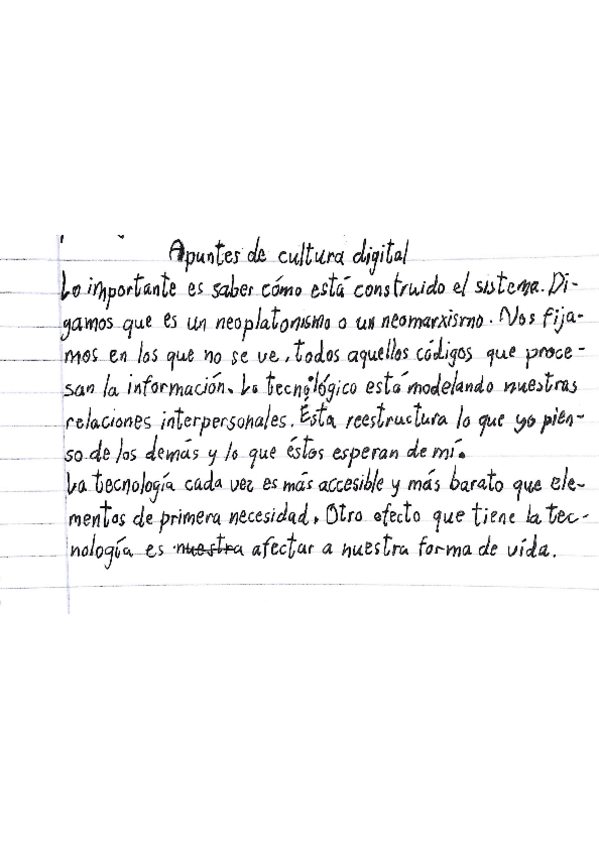 Apuntes de cultura digital
Lo importante es saber cómo está construido el sistema. Di-
gamos que es un neoplatonismo o un neomarxismo. Nos fija-
mos en los que no se ve, todos aquellos códigos que proce-
san la información. Lo tecnológico está modelando nuestras
relaciones interpersonales. Ésta reestructura lo que yo pien-
so de los demás y lo que éstos esperan de mí.
La tecnología cada vez es más accesible y más barato que ele-
mentos de primera necesidad. Otro efecto que tiene la tec-
nología es nuestra afectar a nuestra forma de vida.